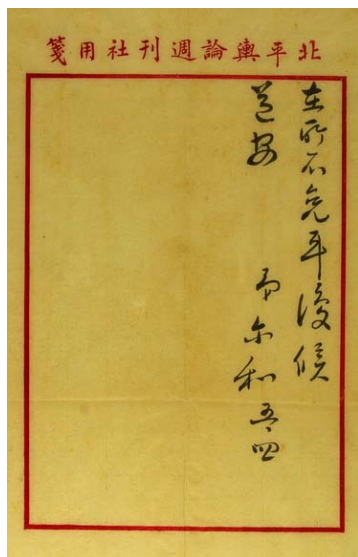 北平輿論週刊社用箋
在所不免耳復候
道安
弟尔和 五四